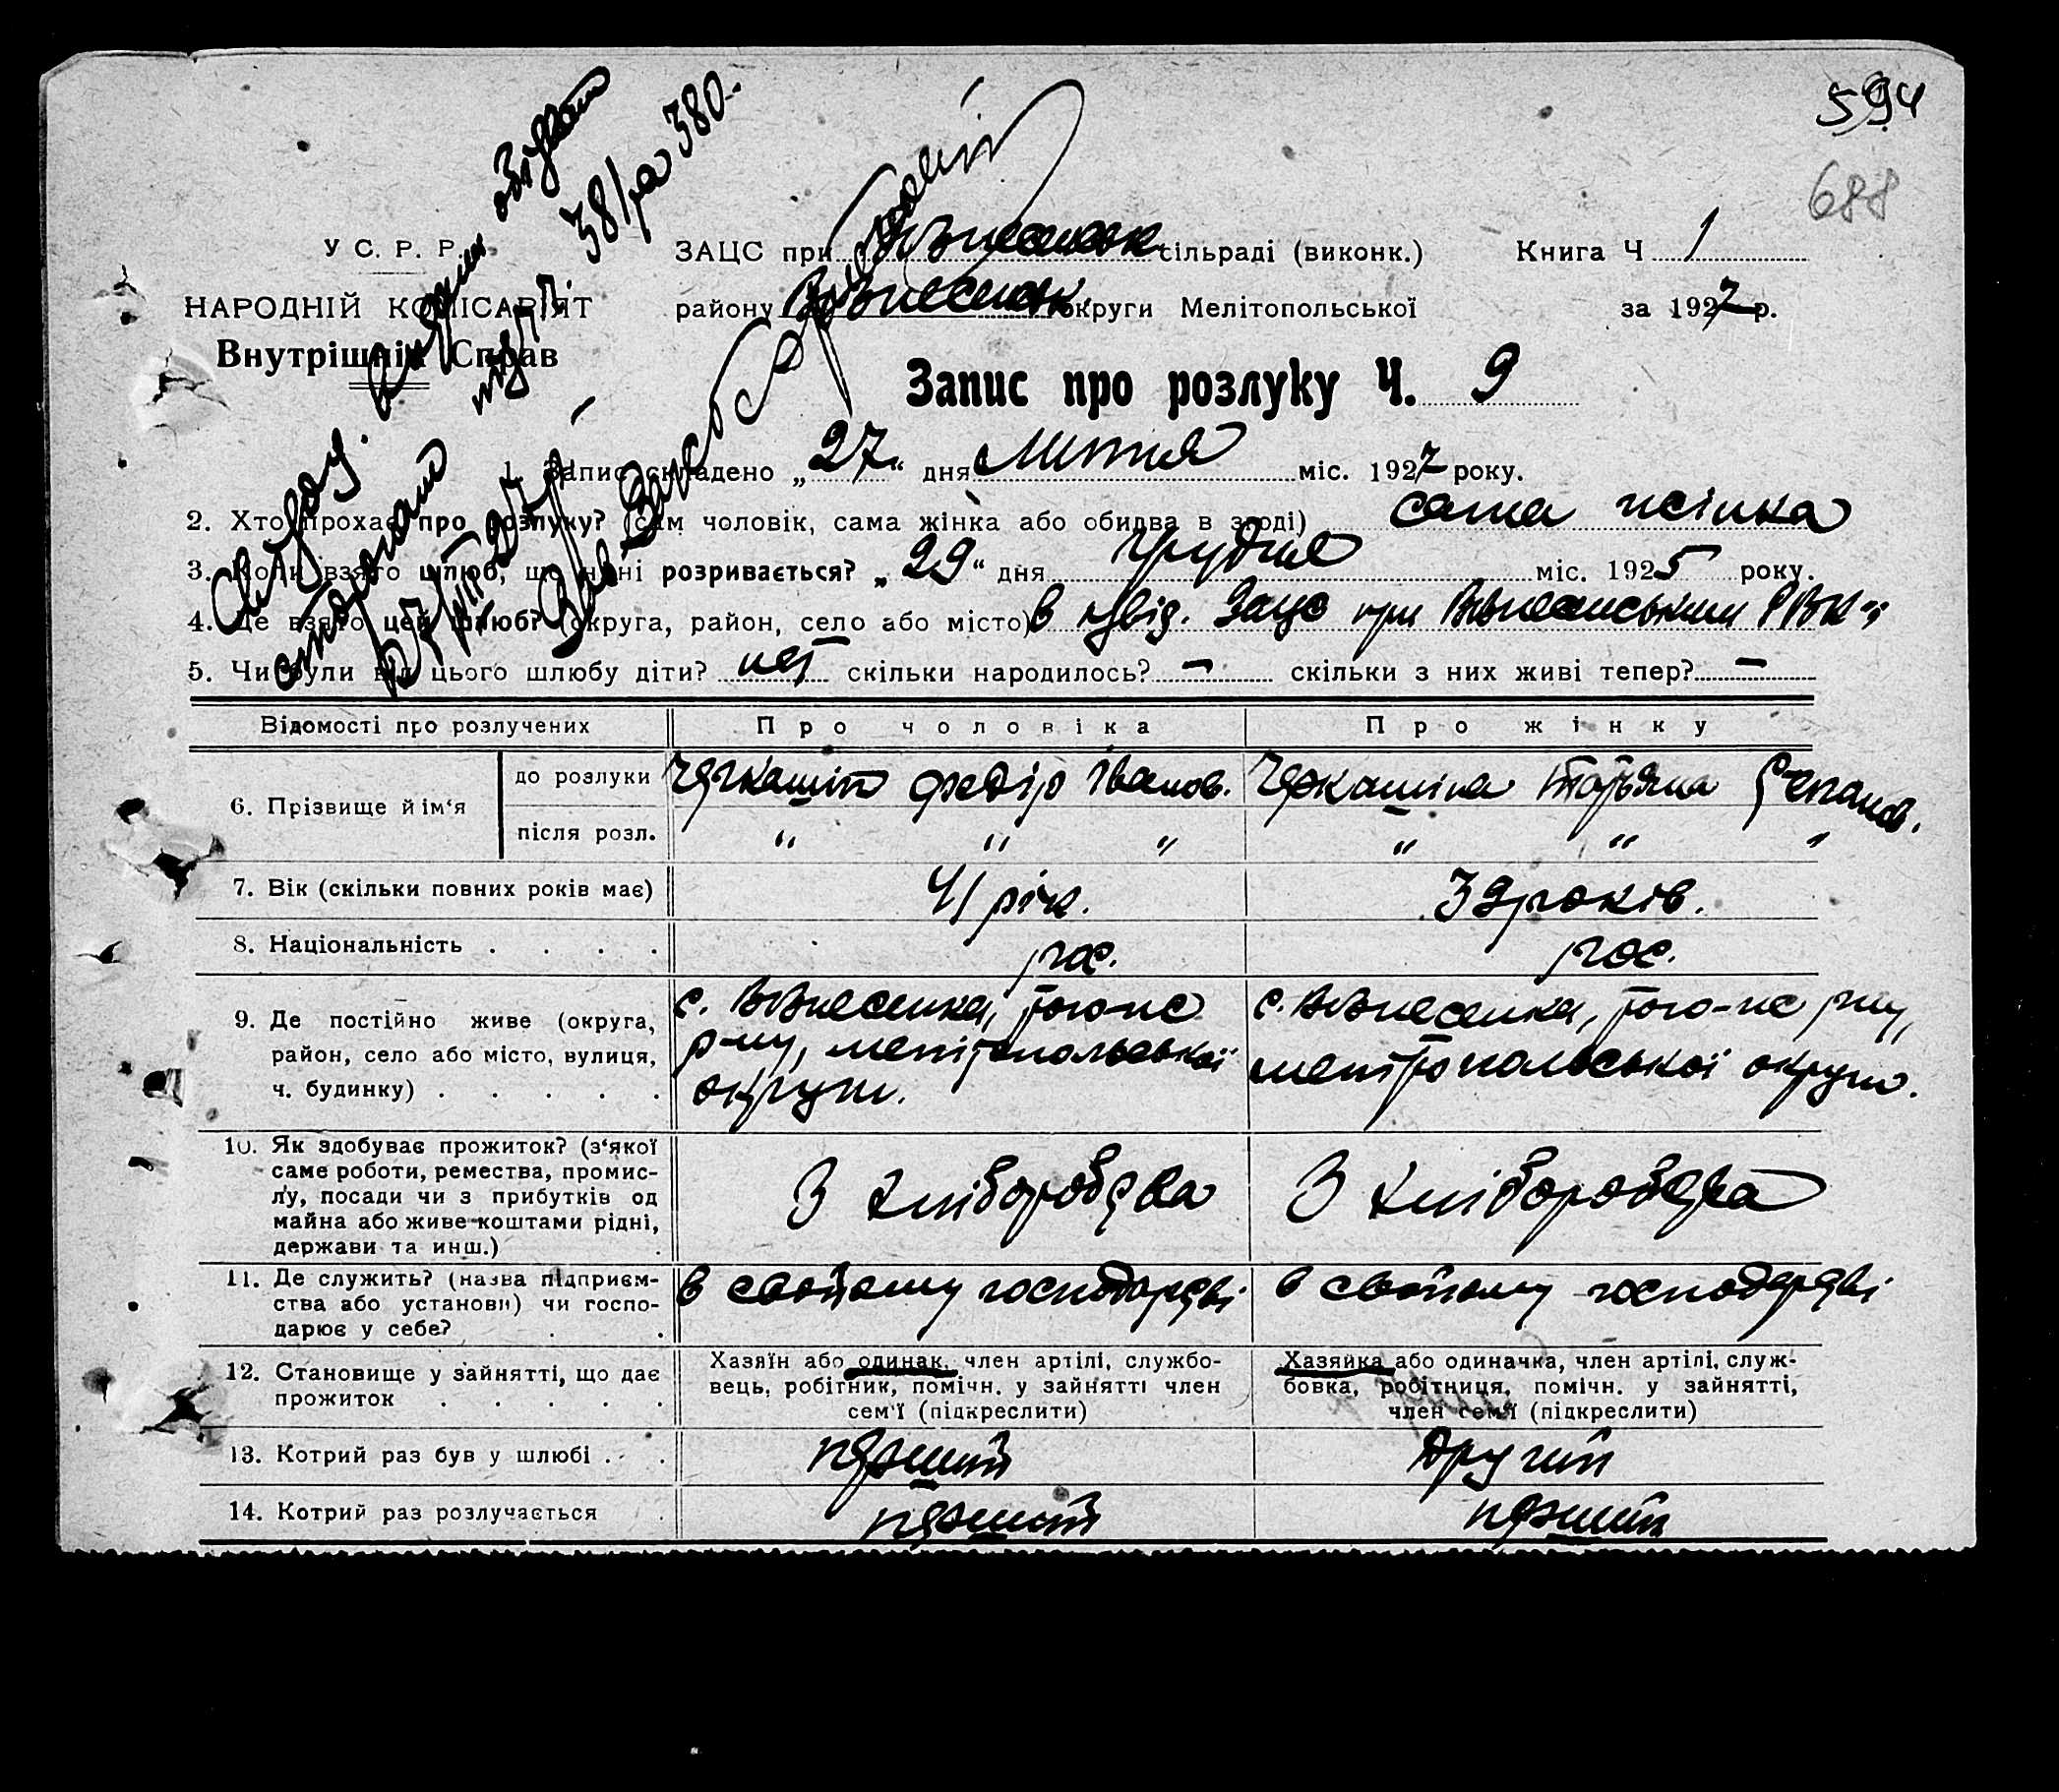 594
688
У С. Р. Р.
НАРОДНІЙ КОМІСАРІЯТ
Внутрішніх Справ
ЗАЦС при Вознесенськ. сільраді (виконк.) Книга Ч 1
району Вознесенськ. округи Мелітопольської за 1927 р.
Запис про розлуку Ч. 9
381 та 380.
1. Запис складено „27“ дня липня міс. 1927 року.
2. Хто прохає про розлуку? (сам чоловік, сама жінка або обидва в згоді) сама жінка
3. Коли взято шлюб, що нині розривається? „29“ дня грудня міс. 1925 року.
4. Де взято цей шлюб? (округа, район, село або місто) в підвід. Загсе при Вознесенським РВК'ї
5. Чи були від цього шлюбу діти? ні скільки народилось? – скільки з них живі тепер? –
Відомості про розлучених Про чоловіка Про жінку
6. Прізвище й ім‘я до розлуки Черкашін Федір Іванов. Черкашіна Татьяна Степанов.
після розл. " " " " " "
7. Вік (скільки повних років має) 41 рік. 39 років.
8. Національність . . . . рос. рос.
9. Де постійно живе (округа, район, село або місто, вулиця, ч. будинку) . . . . . с. Вознесенка, того-же р-ну, мелітопольської округи. с. Вознесенка, того-же р-ну, мелітопольської округи.
10. Як здобуває прожиток? (з‘якої саме роботи, ремества, промислу, посади чи з прибутків од майна або живе коштами рідні, держави та инш.) . З хліборобства З хліборобства
11. Де служить? (назва підприємства або установи) чи господарює у себе? . . в свойому господарстві в свойому господарстві
12. Становище у зайнятті, що дає прожиток . . . . . Хазяїн або одинак, член артілі, службовець, робітник, помічн. у зайнятті член сем‘ї (підкреслити) Хазяйка або одиначка, член артілі, службовка, робітниця, помічн. у зайнятті, член сем‘ї (підкреслити)
13. Котрий раз був у шлюбі . . перший другий
14. Котрий раз розлучається . перший перший